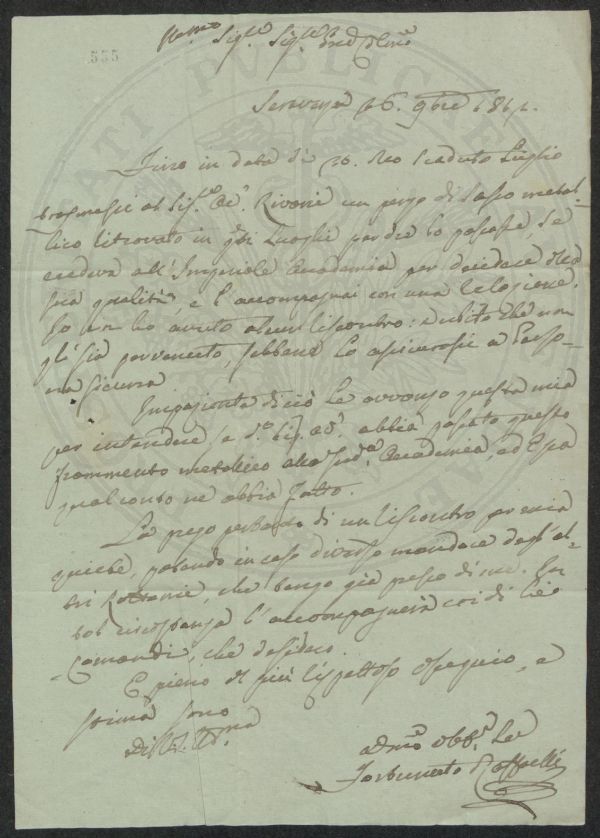 555
Sig.re Sig.re
Seravezza 16. 9bre 1812.
Fino in data di 20. scaduto Luglio
trasmessi al Sig.re Rivani un pezzo di sasso metal-
lico ritrovato in q.ti Luoghi perche lo passasse, se
credeva all'Imperiale Accademia per decidere della
sua qualità, e l'accompagnai con una relazione.
Io non ho avuto alcun riscontro: dubito che non
gli sia pervenuto, sebbene lo a Perso-
na sicura
di ciò le avvanzo questa mia
per intendere se d.o Sig. abbia passato questo
frammento metallico alla Accademia, ed Essa
qual conto ne abbia fatto.
La prego pertanto di un riscontro per mia
quiete, potendo in caso diverso mandare degl'al-
tri che tengo già presso di me. In
tal circostanza l'accompagnerà coi di Lei
Comandi, che desidero.
E pieno di più rispettoso ossequio, e
stima sono
Di V.S.
Raffaelli